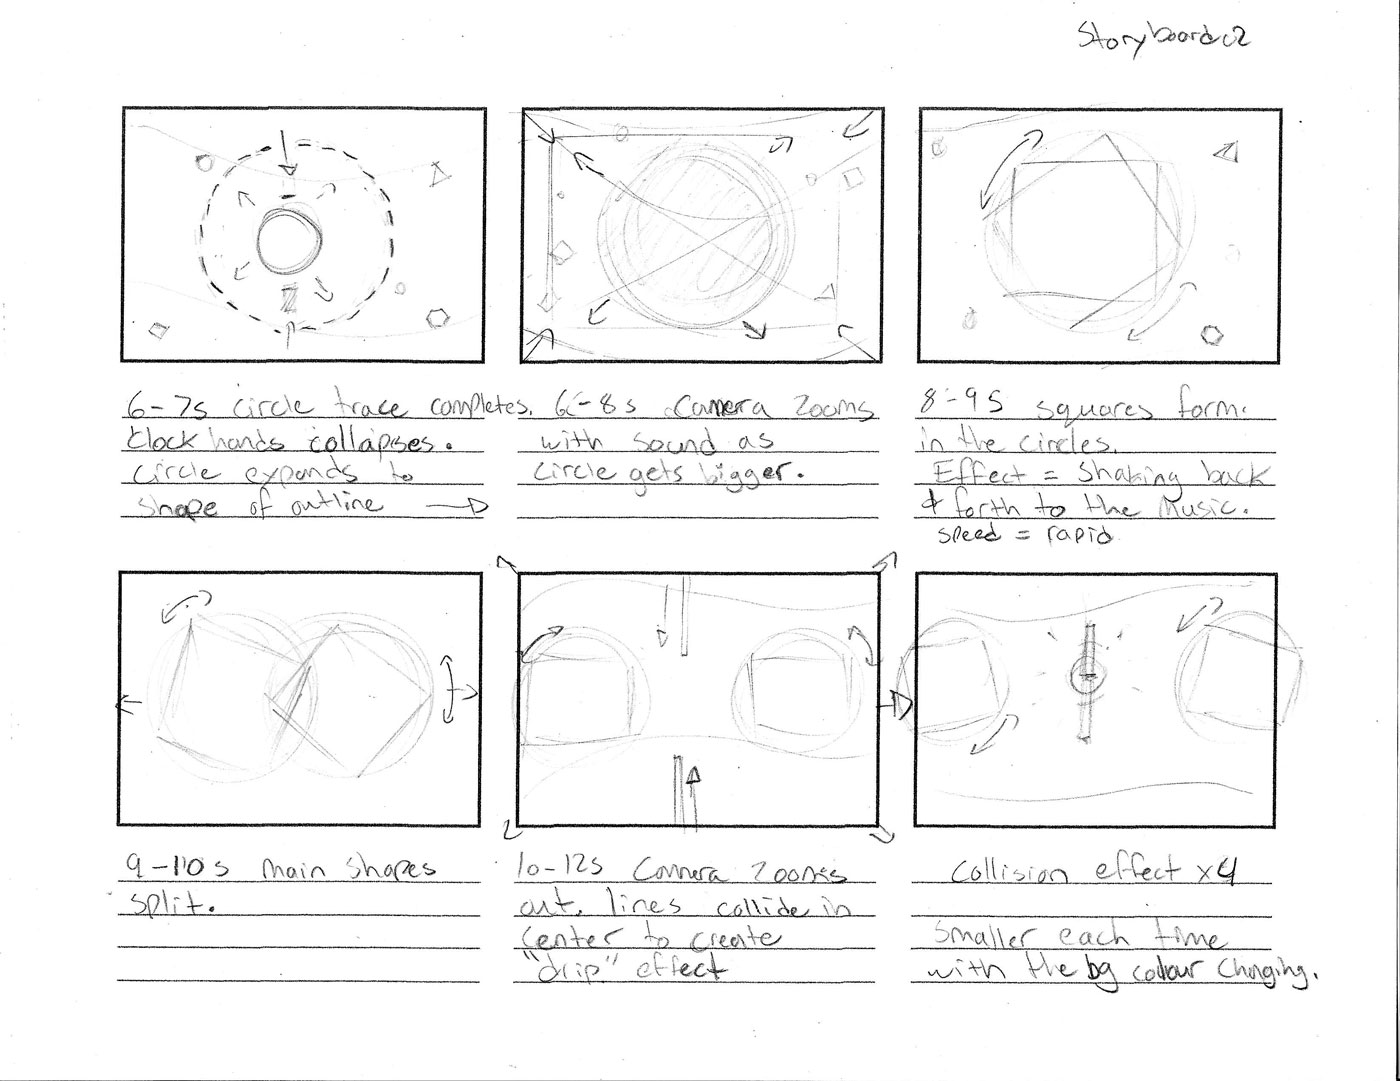 Storyboard v2
6-7s circle trace completes.
Clock hands collapses.
Circle expands to
shape of outline
6-8s Camera zooms
with sound as
circle gets bigger.
8-9s squares form
in the circles.
Effect = Shaking back
& forth to the Music.
speed = rapid
9-10s main shapes
split.
10-12s Camera zooms
out. lines collide in
center to create
"drip" effect
Collision effect x4
Smaller each time
with the bg colour changing.